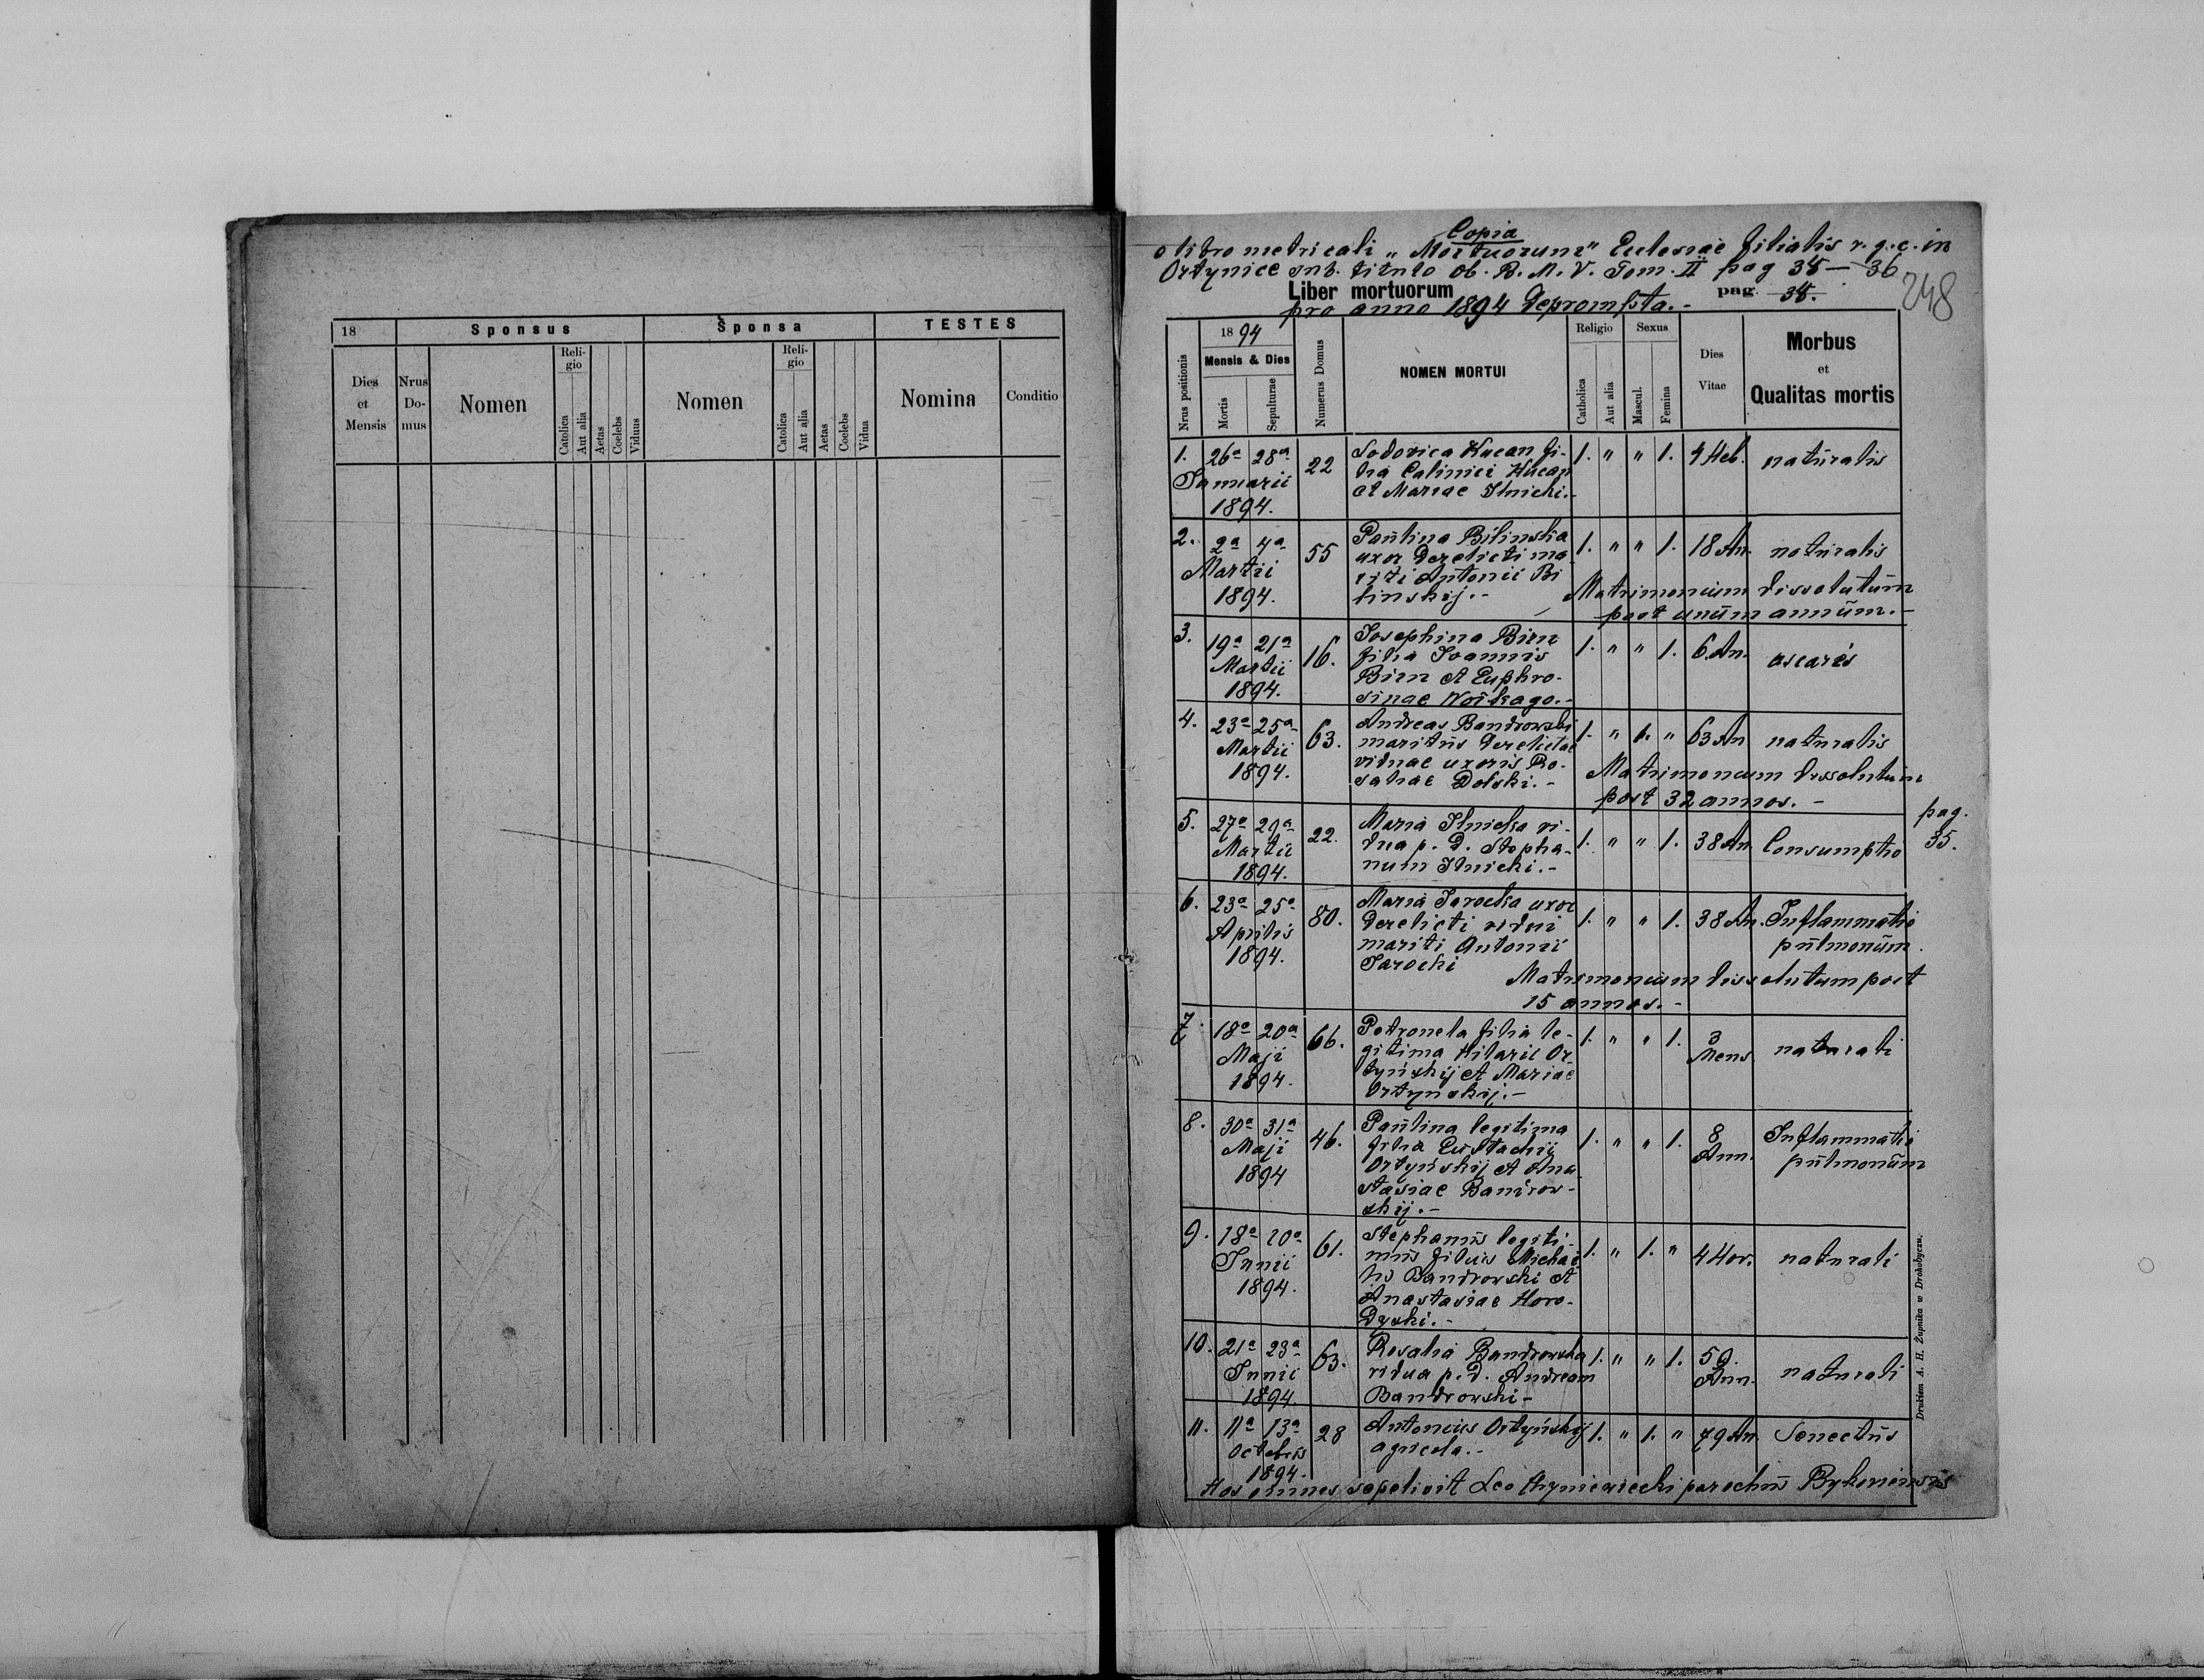 18
Sponsus
Sponsa
TESTES
Dies et Mensis
Nrus Do- mus
Nomen
Reli- gio
Catolica
Aut alia
Aetas
Coelebs
Viduus
Nomen
Reli- gio
Catolica
Aut alia
Aetas
Coelebs
Vidua
Nomina
Conditio
Copia
o libro metricali „Mortuorum" Eclesiae filialis r. g. c. in
Ortynice sub. titulo Ob. B. M. V. Tom. II pag 34 — 36
Liber mortuorum pag. 34.
pro anno 1894 deprompta. -
248
Nrus positionis
1894
Mensis & Dies
Mortis
Sepulturae
Numerus Domus
NOMEN MORTUI
Religio
Catholica
Aut alia
Sexus
Mascul.
Femina
Dies
Vitae
Morbus
et
Qualitas mortis
1. 26a 28a 22 Lodovica Kucan fi- 1. " " 1. 4 Heb. naturalis
Januarii lia Calinici Kucan
1894. et Mariae Ilnicki.-
2. 2a 4a 55 Paulina Bilinska 1. " " 1. 18 An. naturalis
Martii uxor derelicti ma
riti Antonii Bi Matrimonium dissolutum
1894. linskij.- post unum annum.-
3. 19a 21a 16. Josephina Birn 1. " " 1. 6. An. ascaris
Martii filia Joannis
1894. Birn et Euphro-
sinae Woitkago.-
4. 23a 25a 63. Andreas Bandrowski 1. " 1. " 63 An naturalis
Martii maritus derelictae
1894. viduae uxoris Ro- Matrimonium dissolutum
saliae Dolski.- post 32 annos. -
5. 27a 29a 22. Maria Ilnicka vi- 1. " " 1. 38 An. Consumptio
Martii dua p. d. Stepha-
1894. num Ilnicki.-
pag.
35.
6. 23a 25a 80. Maria Jarocka uxor 1. " " 1. 38 An. Inflammatio
Aprilis derelicti vidui pulmonum.
1894. mariti Antonii
Jarocki Matrimonium dissolutum post
15 annos. -
7. 18a 20a 66. Petronela filia le- 1. " " 1. 3 Mens naturali
Maji gitima Hilarii Or-
1894. tyńskij et Mariae
Ortynskij.-
8. 30a 31a 46. Paulina legitima 1. " " 1. 8 Ann. Inflammatio
Maji filia Eustachii pulmonum
1894 Ortyńskij et Ana
stasiae Bandrow-
skij.-
9. 18a 20a 61. Stephanus legiti- 1. " 1. " 4 Hor. naturali
Junii mus filius Michae
1894. lis Bandrowski et
Anastasiae Horo-
dyski.-
10. 21a 23a 63. Rosalia Bandrowska 1. " " 1. 59. Ann. naturali
Junii vidua p. d. Andream
1894. Bandrowski-
11. 11a 13a 28 Antonius Ortyńskij 1. " 1. " 79 An. Senectus
Octobris agricola.-
1894.
Hos omnes sepelivit Leo Hryniewiecki parochus Bykoviensis
Drukiem A. H. Żupnika w Drohobyczu.